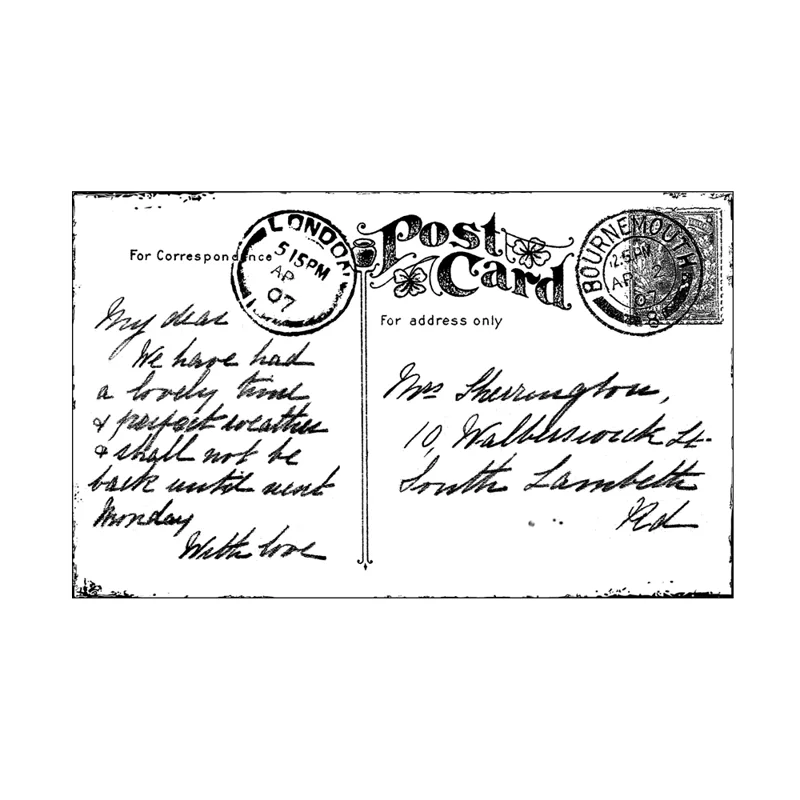 Post
Card
For Correspondence
For address only
LONDON
5 15 PM
AP
07
BOURNEMOUTH
12.5 PM
AP 2
07
8
My dear
We have had
a lovely time
& perfect weather
& shall not be
back until next
Monday
With love
Mrs Sherrington,
10, Walberswick St.
South Lambeth
Rd